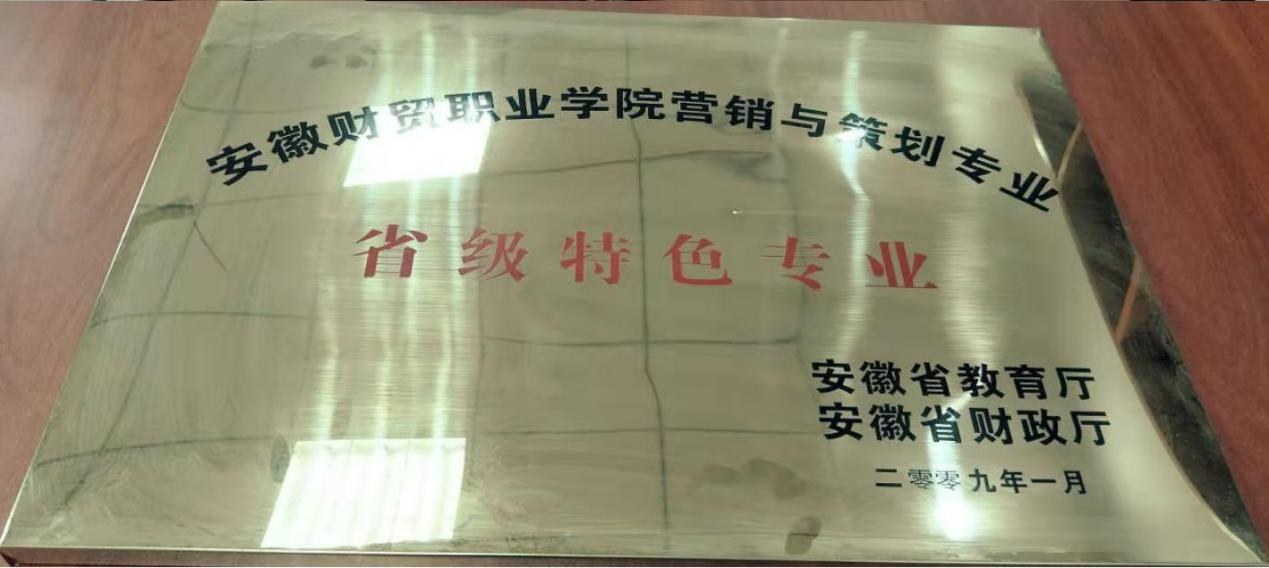 安徽财贸职业学院营销与策划专业
省级特色专业
安徽省教育厅
安徽省财政厅
二零零九年一月